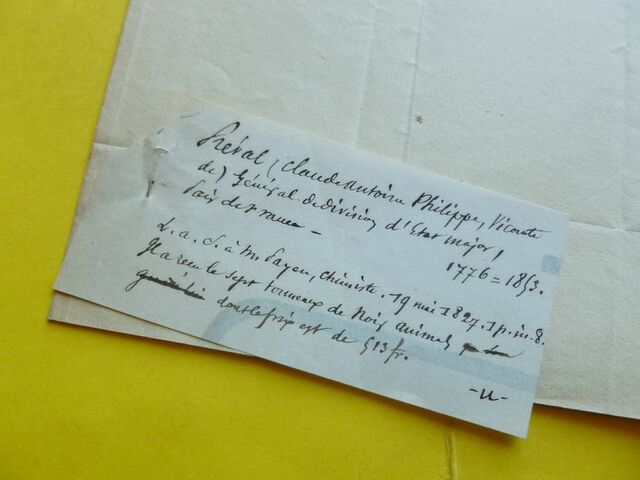 Préval, (Claude Antoine Philippe, Vicomte
de) Général de division d'Etat major,
Pair de France - 1776 = 1853.
L. a. S. à M. Payen, chimiste. 19 mai 1827. 1 p. in-8.
Il a reçu le sept tonneaux de Noir animal
dont le prix est de 513 fr.
-u-